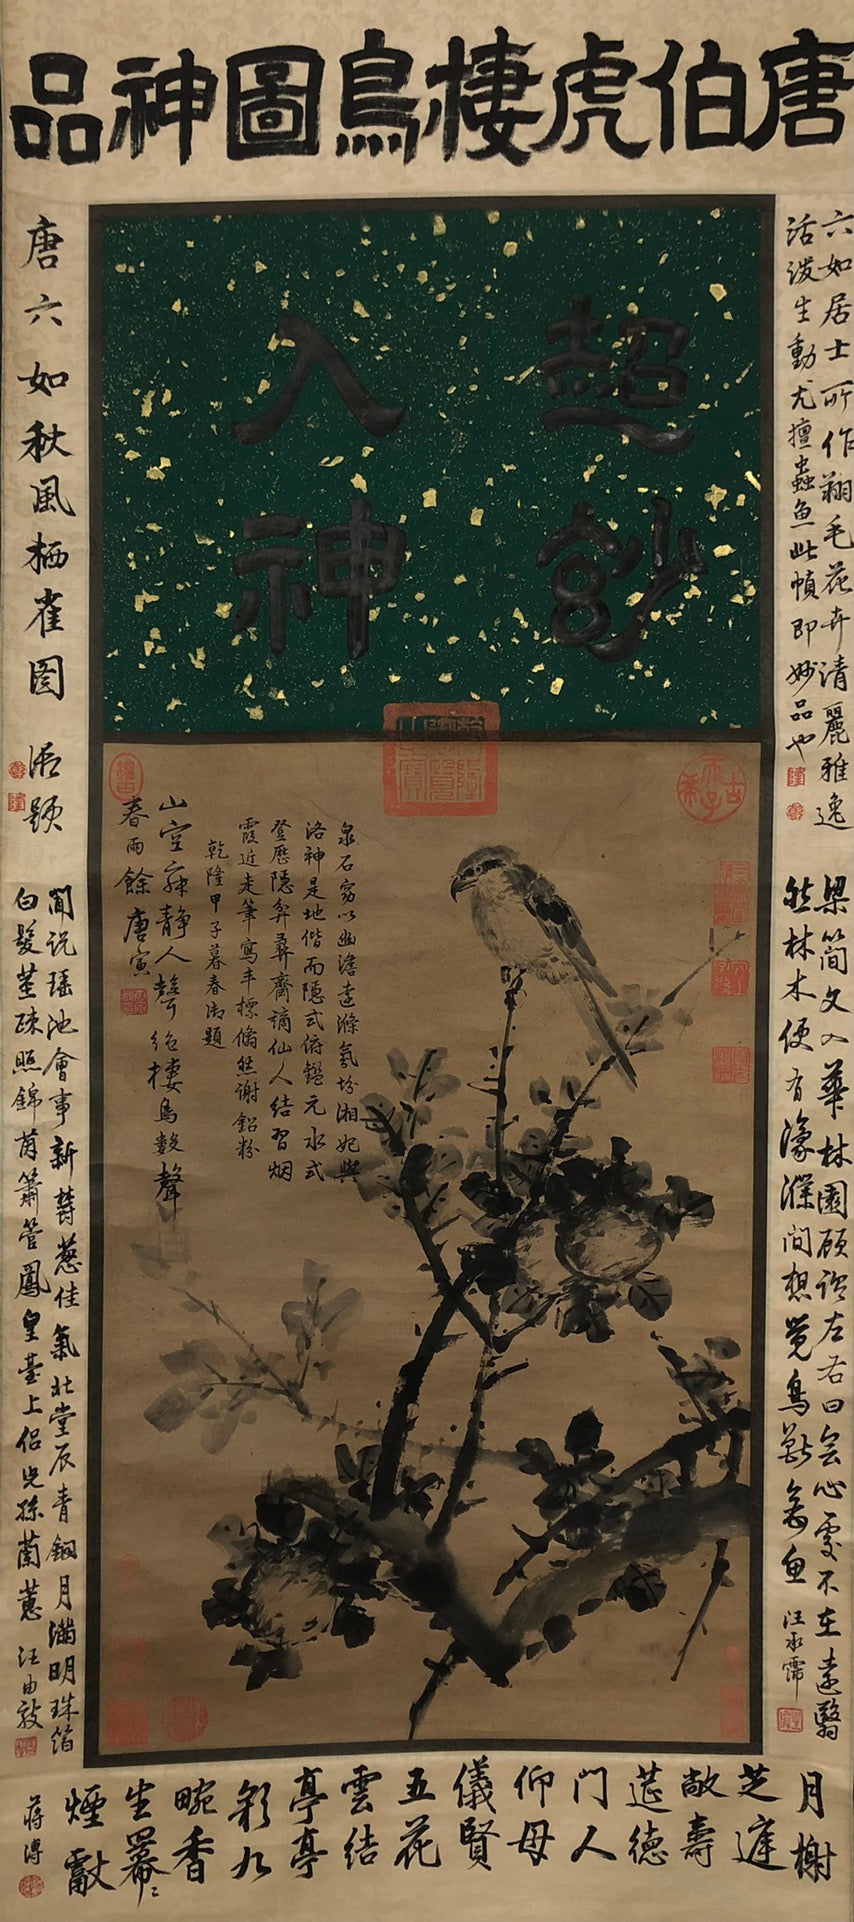 唐伯虎棲鳥圖神品
超妙
入神
六如居士所作翔毛花卉清麗雅逸
活潑生動尤擅蟲魚此幀即妙品也
唐六如秋風栖雀图
泉石窈以幽澹遠滌氛坋湘妃與
洛神是地偕而隱式俯鑑元水式
登歷隱弅彝齋謫仙人結習烟
霞近走筆寫丰標翛然謝鉛粉
乾隆甲子暮春御題
山空寂静人聲絶棲鳥數聲
春雨餘唐寅
梁簡文入華林園顾谓左右曰会心處不在遠翳
然林木便有濠濮间想觉鳥獸禽鱼
汪承霈
聞说瑶池會事新菁葱佳氣北堂辰青銅月滿明珠箔
白髮莖疎照錦茵簫管鳳皇臺上侣兒孫蘭蕙
汪由敦
月榭
芝遲
敞壽
莚德
門人
仰母
儀賢
五花
雲结
亭亭
彩九
畹香
生幂
煙獻
蒋溥